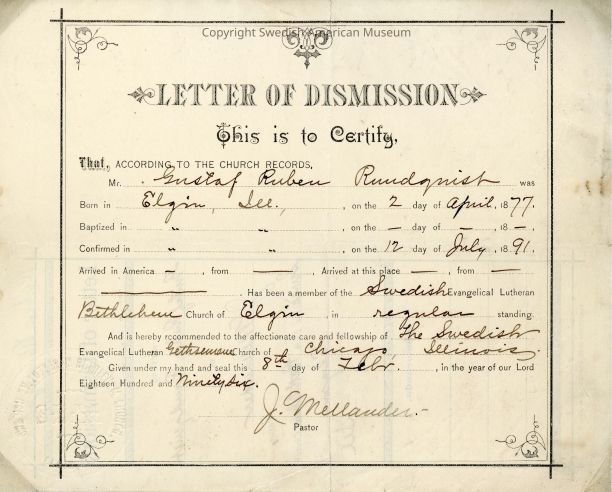 Copyright Swedish American Museum
LETTER OF DISMISSION
This is to Certify,
That, ACCORDING TO THE CHURCH RECORDS,
Mr. Gustaf Ruben Rundquist was
Born in Elgin, Ill., on the 2 day of April, 1877.
Baptized in " " , on the – day of – 18 –
Confirmed in " " , on the 12 day of July, 1891.
Arrived in America – , from — , Arrived at this place — , from —
— . Has been a member of the Swedish Evangelical Lutheran
Bethlehem Church of Elgin , in regular standing.
And is hereby recommended to the affectionate care and fellowship of The Swedish
Evangelical Lutheran Gethsemane Church of Chicago Illinois.
Given under my hand and seal this 8th day of Febr. , in the year of our Lord
Eighteen Hundred and Ninety six.
J. Mellander.-
Pastor